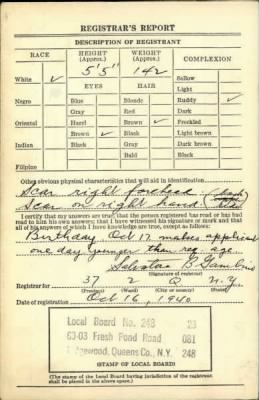 REGISTRAR'S REPORT
DESCRIPTION OF REGISTRANT
RACE HEIGHT (Approx.) WEIGHT (Approx.) COMPLEXION
5'5" 142 Sallow
White ✓ EYES HAIR Light
Negro Blue Blonde Ruddy ✓
Gray Red Dark
Oriental Hazel Brown ✓ Freckled
Brown ✓ Black Light brown
Indian Black Gray Dark brown
Bald Black
Filipino
Other obvious physical characteristics that will aid in identification
Scar right forehead
Scar on right hand (back
I certify that my answers are true; that the person registered has read or has had
read to him his own answers; that I have witnessed his signature or mark and that
all of his answers of which I have knowledge are true, except as follows:
Birthday Oct 17 makes
one day younger than reg age
(Signature of registrar)
Registrar for 37 2 Q N.Y.
(Precinct) (Ward) (City or county) (State)
Date of registration Oct 16, 1940
Local Board No. 248 23
63-03 Fresh Pond Road 081
Ridgewood, Queens Co., N.Y. 248
(STAMP OF LOCAL BOARD)
(The stamp of the Local Board having jurisdiction of the registrant
shall be placed in the above space.)